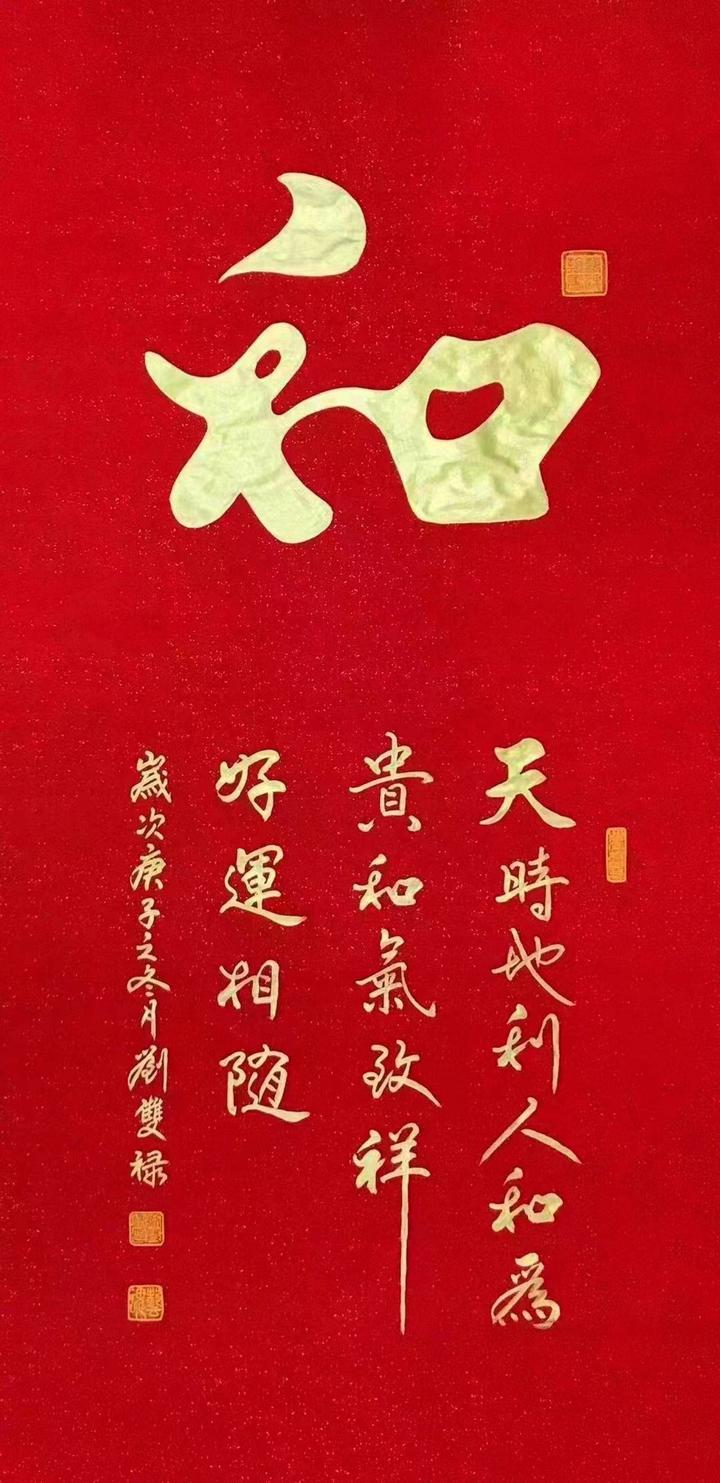 和
天時地利人和爲
貴和氣致祥
好運相随
歲次庚子之冬月劉雙禄